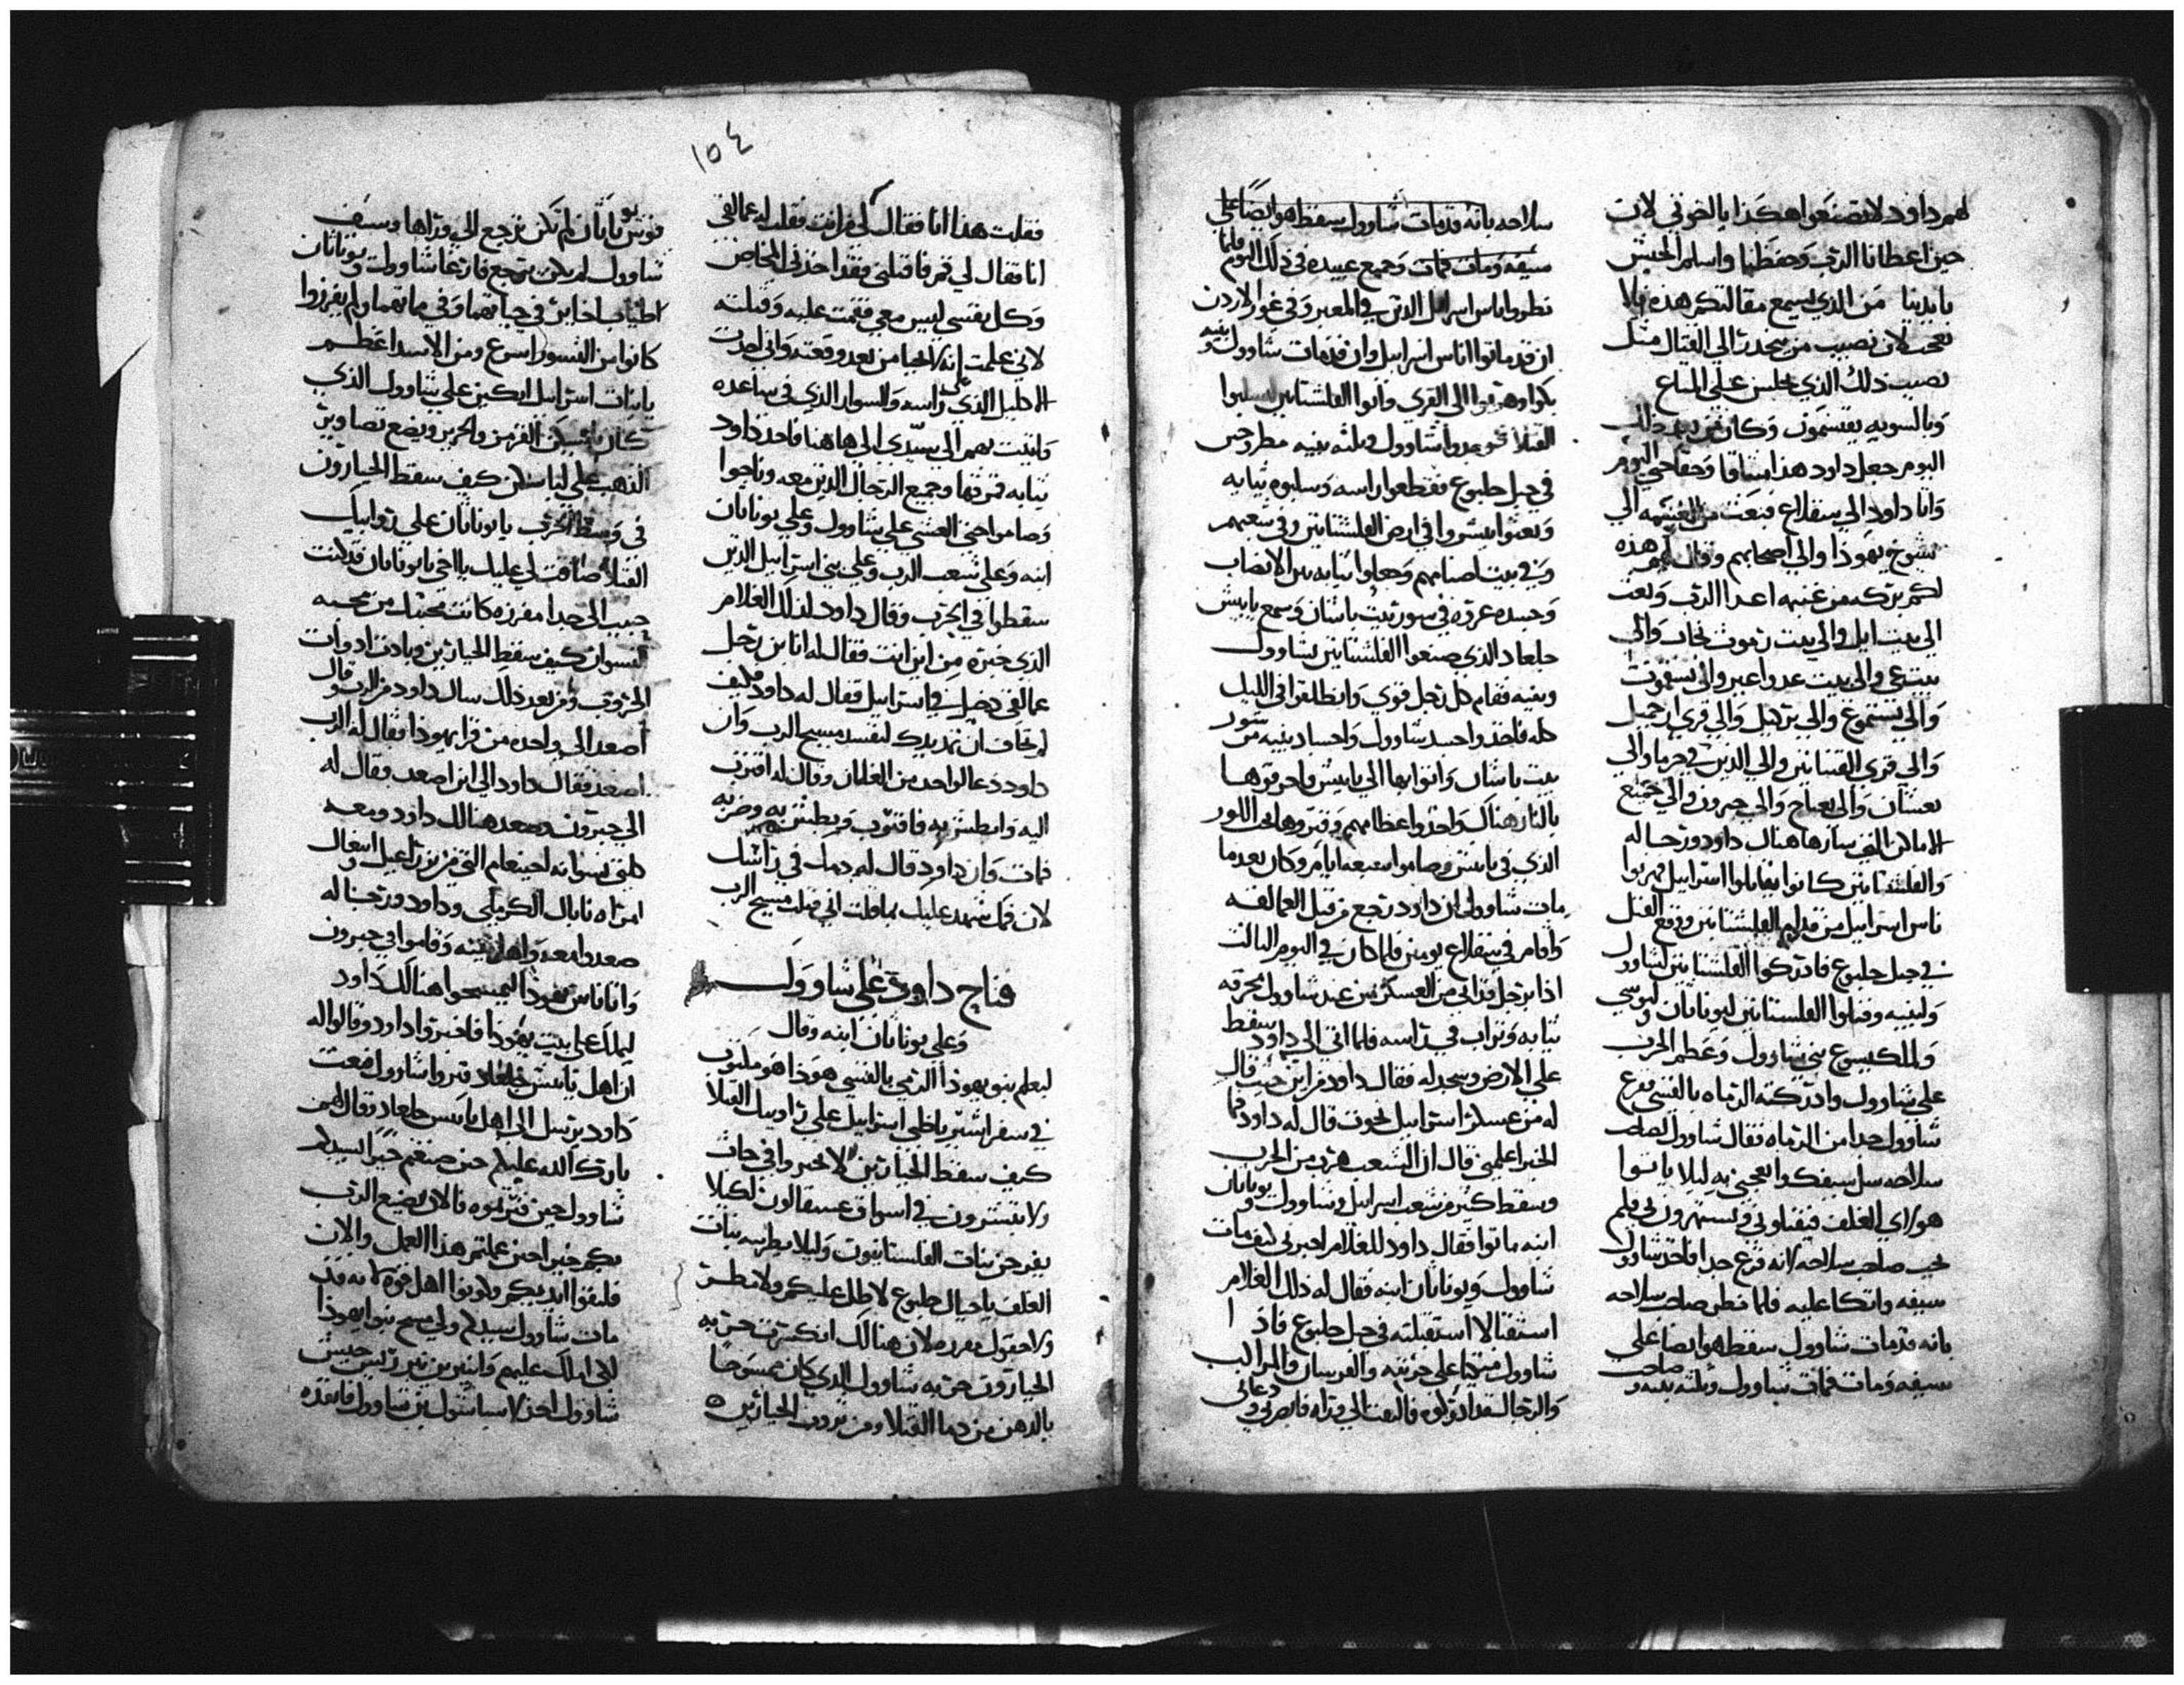 لهم داود لا تصنعوا هكذا يا اخوتي لان
حين اعطانا الرب وحفظنا واسلم الجيش
بايدينا من الذي يسمع مقالتكم هذه بلا
تعجب لان نصيب من ينحدر الي القتال مثل
نصيب ذلك الذي يجلس علي المتاع
وبالسويه يقتسمون وكان من بعد ذلك
اليوم جعل داود هذا ميثاقا وحقا حتي اليوم
واتا داود الي سقلاغ فبعث من الغنيمه الي
شيوخ يهوذا والي اصحابهم وقال لهم هذه
لكم بركه من غنيمه اعدا الرب وبعث
الي بيت ايل والي بيت رموث
والي قري القينانيين والي الذين في حرما والي
والي حبرون والي جميع
الاماكن التي سارها هناك داود ورجاله
والفلشتانيين كانوا يقاتلوا اسراييل فهربوا
ناس اسراييل من قدام الفلشتانيين ووقع القتل
في جبل جلبوع فادركوا الفلشتانيين لشاوول
ولبنيه وقتلوا الفلستانيين ليوناثان
والملكيسوع بني شاوول وعظم الحرب
علي شاوول وادركته الرماه بالقسي ففزع
شاوول جدا من الرماه فقال شاوول لصاحب
سلاحه سل سيفك وابعجني به ليلا ياتوا
هولاي الغلف فيقتلوني ويستهزون بي فلم
يحب صاحب سلاحه لانه فزع جدا فاخذ شاوول
سيفه واتكا عليه فلما نظر صاحب سلاحه
بانه قد مات شاوول سقط هو ايضا علي
سيفه ومات فمات شاوول وثلثه بنيه وصاحب
سلاحه بانه قد مات شاوول سقط هو ايضا علي
سيفه ومات فمات وجميع عبيده في ذلك اليوم فلما
نظروا ناس اسراييل الذين في المعبر وفي غور الاردن
ان قد ماتوا اناس اسراييل وان قد مات شاوول وبنيه
وهربوا الي القري واتوا الفلشتانيين ليسلبوا
القتلا فوجدوا شاوول وثلثه بنيه مطروحين
في جبل جلبوع فقطعوا راسه وسلبوه ثيابه
وبعثوا يبشروا في ارض الفلشتانيين وفي شعبهم
وفي بيت اصنامهم وجعلوا ثيابه بين الانصاب
وجسده عروه في سور بيت باشان وسمع يابيش
جلعاد الذي صنعوا الفلشتانيين بشاوول
وبنيه فقام كل رجل قوي وانطلقوا في الليل
كله فاخذوا جسد شاوول واجساد بنيه من سور
بيت باشان واتوا بها الي يابيش واحرقوها
بالنار هناك واخذوا عظامهم وقبروها تحت اللوز
الذي في يابيش وصاموا سبعه ايام وكان بعد ما
مات شاوول ان داود رجع من قبل العمالقه
واقام في سقلاغ يومين فلما كان في اليوم الثالث
اذا برجل قد اتي من العسكر من عند شاوول محرقه
ثيابه وتراب في راسه فلما اتي الي داود سقط
علي الارض وسجد له فقال داود من اين جيت قال
له من عسكر اسراييل نجوت قال له داود فما
الخبر اعلمني قال ان الشعب هرب من الحرب
وسقط كثير من شعب اسراييل وشاوول ويوناثان
ابنه ماتوا فقال داود للغلام اخبرني كيف مات
شاوول ويوناثان ابنه فقال له ذلك الغلام
استقبالا استقبلته في جبل جلبوع فاذا
شاوول متكيا علي حربته والفرسان والمراكب
والرجال قد ادركوه فالتفت الي وراه فابصرني ودعاني
١٥٤
فقلت هذا انا فقال لي من انت فقلت له عمالقي
انا فقال لي قم فاقتلني فقد اخذني المخاض
وكل نفسي ليس معي فقمت عليه وقتلته
لاني علمت انه لا يحيا من بعد وقعته واني اخذت
الاكليل الذي علي راسه والسوار الذي في ساعده
واتيت بهم الي سيدي الي هاهنا فاخذ داود
ثيابه فمزقها وجميع الرجال الذين معه وناحوا
وصاموا حتي العشي علي شاوول وعلي يوناثان
ابنه وعلي شعب الرب وعلي بني اسراييل الذين
سقطوا في الحرب وقال داود لذلك الغلام
الذي خبره من اين انت فقال له انا بن رجل
عمالقي دخيل في اسراييل فقال له داود فكيف
لم تخاف ان تمد يدك لتفسد مسيح الرب وان
داود دعا لواحد من الغلمان وقال له اقترب
اليه وابطش به فاقترب وبطش به وضربه
فمات وان داود قال له دمك في راسك
لان فمك شهد عليك بما قلت اني قتلت مسيح الرب
مناح داود علي شاوول
وعلي يوناثان ابنه وقال
ليعلم بنو يهوذا الرمي بالقسي هوذا هو مكتوب
في سفر اشير يا ظبي اسراييل علي روابيك القتلا
كيف سقط الجبارين لا تخبروا في جاث
ولا تبشرون في اسواق عسقالون لكيلا
يفرحن بنات الفلستانيون وليلا يطربن بنات
الغلف يا جبال جلبوع لا طل عليكم ولا مطر
ولا حقول مفرده لان هنالك انكسرت حربه
الجبارون حربه شاوول الذي كان ممسوحا
بالدهن من دما القتلا ومن ثروب الجبارين
قوس يوناثان لم تكن ترجع الي وراها وسيف
شاوول لم يكن يرجع فارغا شاوول ويوناثان
اطياب اخاير في حياتهما وفي مماتهما ولم يفرزوا
كانوا من النسور اسرع ومن الاسد اعظم
يا بنات اسراييل ابكين علي شاوول الذي
كان يلبسكن القرمز والحرير ويضع تصاوير
الذهب علي لباسكن كيف سقط الجبارون
في وسط الحرب يا يوناثان علي روابيك
القتلا ضاقت لي عليك يا اخي يا يوناثان قد كنت
حبيب الي جدا مفرزه كانت محبتك من محبه
النسوان كيف سقط الجبارين وبادت ادوات
الحروب ومن بعد ذلك سال داود من الرب وقال
اصعد الي واحده من قرا يهوذا فقال له الرب
اصعد فقال داود الي اين اصعد فقال له
الي حبرون وصعد هنالك داود ومعه
كلتي نسواته احينعام التي من يزراعيل وابغال
امراه نابال الكرملي وداود ورجاله
صعدوا معه واهل بيته وقاموا في حبرون
واتا ناس يهوذا ليمسحوا هنالك داود
ليملك علي بيت يهوذا فاخبروا داود وقالوا له
ان اهل يابيش جلعاد قبروا شاوول فبعث
داود برسل الي اهل يابيس جلعاد وقال لهم
بارك الله عليكم حين صنعتم خيرا لسيدكم
شاوول حين قبرتموه فالان يصنع الرب
بكم خير احين عملتم هذا العمل والان
فليقوا ايديكم وكونوا اهل قوه لانه قد
مات شاوول سيدكم ولي مسح بنو يهوذا
لكي املك عليهم وابنير بن نير رييس جيش
شاوول اخذ لاسباشول بن شاوول فابعده